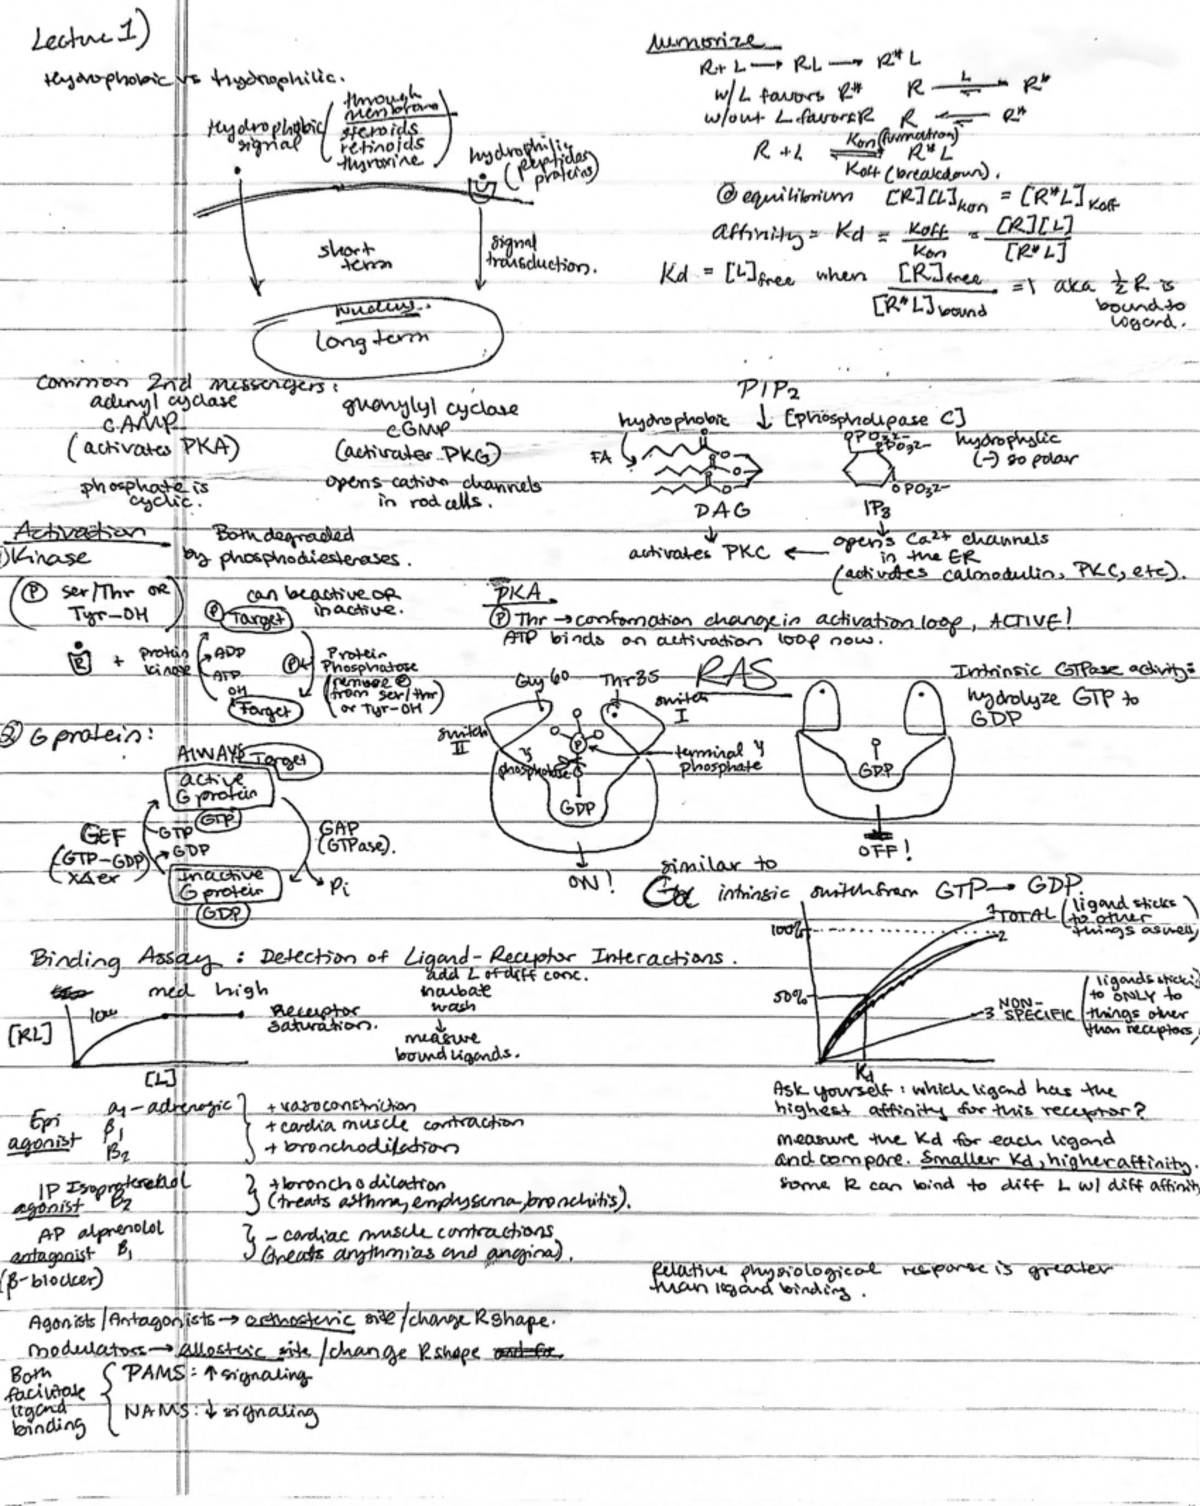 Lecture 1)
Hydrophobic vs Hydrophilic.
Hydrophobic signal
(through membrane
steroids
retinoids
thyroxine)
hydrophilic
(peptides
proteins)
short term
signal
transduction.
Nucleus.
long term
Memorize
R + L → RL → R* L
w/L favors R* R L R*
w/out L favors R R R*
R + L Kon (formation) R* L
Koff (breakdown).
@ equilibrium [R][L]kon = [R*L]Koff
affinity = Kd = Koff/Kon = [R][L]/[R*L]
Kd = [L]free when [R]free/[R*L]bound = 1 aka ½ R is
bound to
ligand.
Common 2nd messengers:
adenyl cyclase
cAMP
(activates PKA)
phosphate is
cyclic.
guanylyl cyclase
cGMP
(activates PKG)
opens cation channels
in rod cells.
Both degraded
by phosphodiesterases.
PIP2
↓ [phospholipase C]
hydrophobic
FA
DAG
↓
activates PKC ←
OPO32-
OPO32-
OPO32-
hydrophylic
(-) so polar
IP3
↓
opens Ca2+ channels
in the ER
(activates calmodulin, PKC, etc).
Activation
1) Kinase
(P ser/Thr OR
Tyr-OH)
can be active OR
inactive.
P Target
R + protein kinase
ADP
ATP
OH
Target
P
Protein
Phosphatase
(remove P
from ser/thr
or Tyr-OH)
PKA
P Thr → conformation change in activation loop, ACTIVE!
ATP binds on activation loop now.
RAS
Gly 60
Thr35
switch
I
switch
II
γ phosphate
P
terminal γ
phosphate
GDP
ON!
GDP
OFF!
Intrinsic GTPase activity:
hydrolyze GTP to
GDP
2) G protein:
ALWAYS Target
active
G protein
GTP
GEF
(GTP-GDP
XΔer)
GTP
GDP
GAP
(GTPase).
Pi
Inactive
G protein
GDP
similar to
Gα intrinsic switch from GTP → GDP.
Binding Assay: Detection of Ligand-Receptor Interactions.
low med high
[RL]
[L]
Receptor
saturation.
add L of diff conc.
incubate
wash
↓
measure
bound ligands.
100%
50%
Kd
1 TOTAL (ligand sticks
to other
things as well)
2
3 NON-
SPECIFIC
(ligand sticks
to ONLY to
things other
than receptors)
Ask yourself: which ligand has the
highest affinity for this receptor?
measure the Kd for each ligand
and compare. Smaller Kd, higher affinity.
some R can bind to diff L w/ diff affinity
Epi
agonist
α1-adrenogic
β1
β2
+ vasoconstriction
+ cardia muscle contraction
+ bronchodilation
IP Isoproterenol
agonist β2
+ bronchodilation
(treats asthma, emphysema, bronchitis).
AP alprenolol
antagonist β1
(β-blocker)
- cardiac muscle contractions
(treats arythmias and angina).
Relative physiological response is greater
than ligand binding.
Agonists/Antagonists → orthosteric site/change R shape.
modulators → allosteric site/change R shape
Both
facilitate
ligand
binding
PAMS: ↑ signaling
NAMS: ↓ signaling